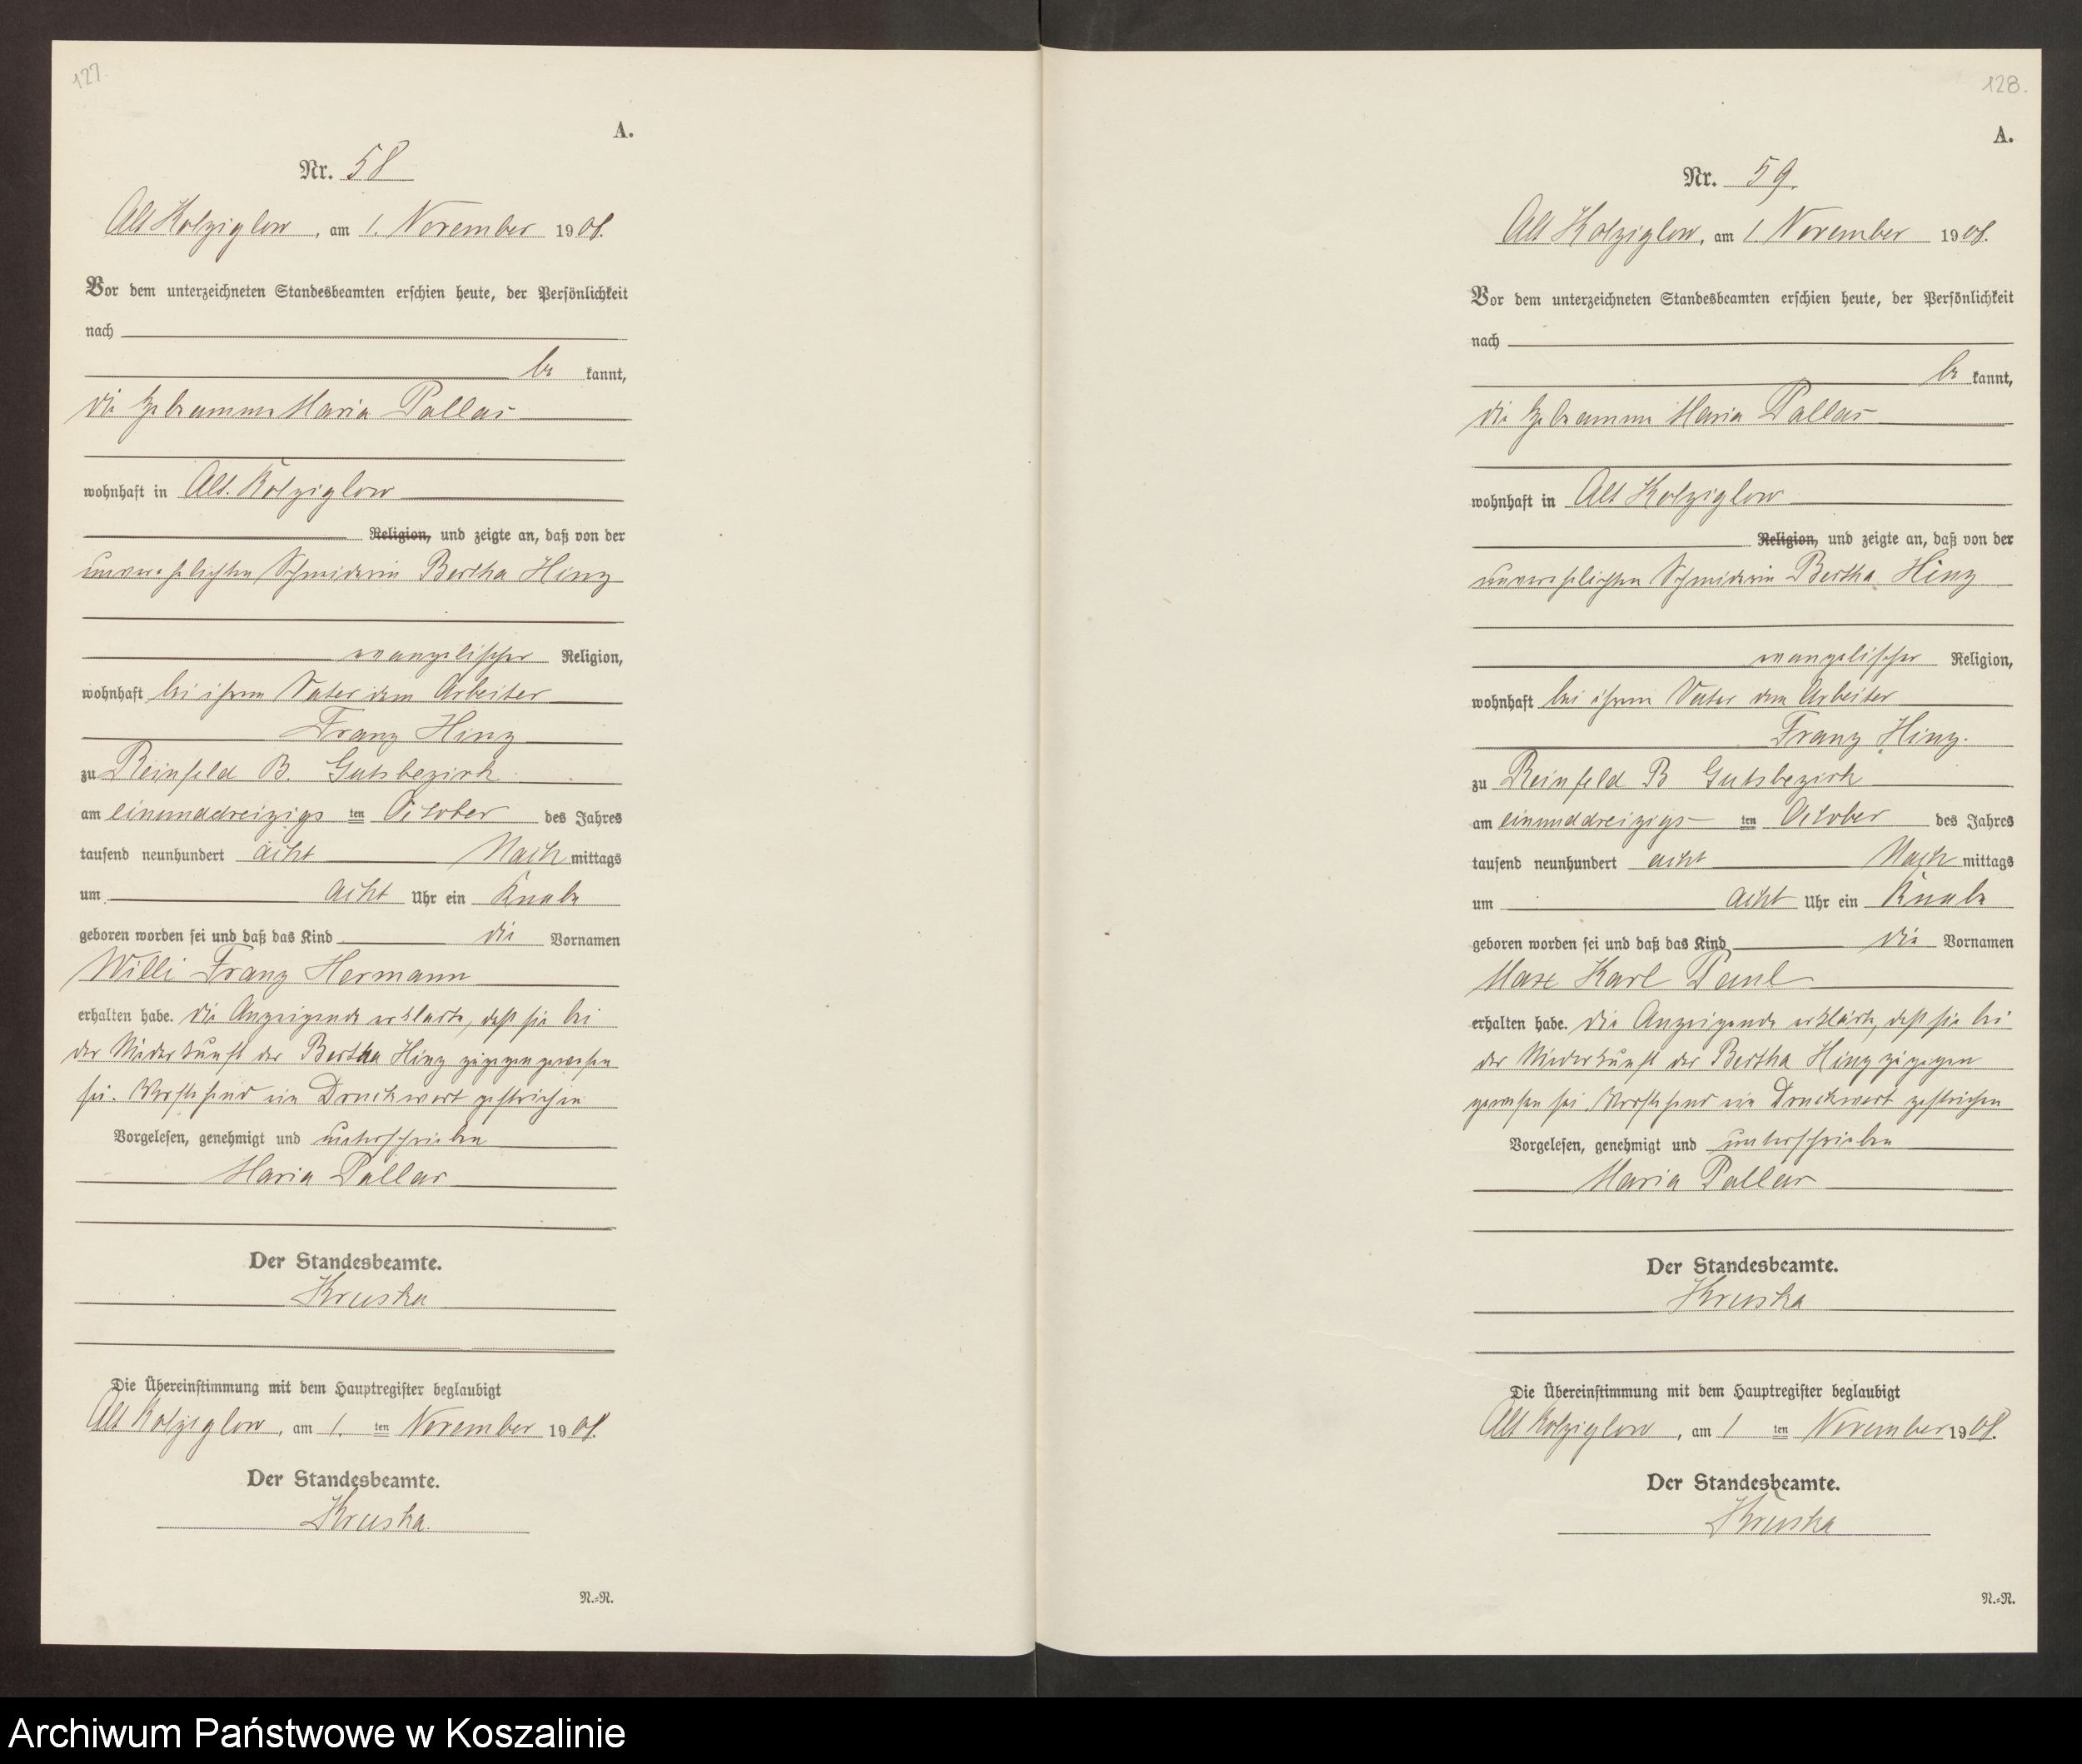 127.
A.
Nr. 58
Alt Kolziglow, am 1. November 1908.
Vor dem unterzeichneten Standesbeamten erschien heute, der Persönlichkeit
nach
be kannt,
die Hebamme Maria Pallas
wohnhaft in Alt. Kolziglow
Religion, und zeigte an, daß von der
unverehelichten Schneiderin Bertha Hinz
evangelischer Religion,
wohnhaft bei ihrem Vater dem Arbeiter
Franz Hinz
zu Reinfeld B. Gutsbezirk
am einunddreizigs ten October des Jahres
tausend neunhundert acht Nach mittags
um acht Uhr ein Knabe
geboren worden sei und daß das Kind die Vornamen
Willi Franz Hermann
erhalten habe. Die Anzeigende erklärte, daß sie bei
der Niederkunft der Bertha Hinz zugegen gewesen
sei. Vorstehend ein Druckwort gestrichen
Vorgelesen, genehmigt und unterschrieben
Maria Pallas
Der Standesbeamte.
Kruska
Die Übereinstimmung mit dem Hauptregister beglaubigt
Alt Kolziglow, am 1. ten November 1908.
Der Standesbeamte.
Kruska.
N.=N.
128.
A.
Nr. 59.
Alt Kolziglow, am 1. November 1908.
Vor dem unterzeichneten Standesbeamten erschien heute, der Persönlichkeit
nach
be kannt,
die Hebamme Maria Pallas
wohnhaft in Alt Kolziglow
Religion, und zeigte an, daß von der
unverehelichten Schneiderin Bertha Hinz
evangelischer Religion,
wohnhaft bei ihrem Vater dem Arbeiter
Franz Hinz.
zu Reinfeld B Gutsbezirk
am einunddreizigs ten October des Jahres
tausend neunhundert acht Nach mittags
um acht Uhr ein Knabe
geboren worden sei und daß das Kind die Vornamen
Max Karl Paul
erhalten habe. Die Anzeigende erklärte, daß sie bei
der Niederkunft der Bertha Hinz zugegen
gewesen sei. Vorstehend ein Druckwort gestrichen
Vorgelesen, genehmigt und unterschrieben
Maria Pallas
Der Standesbeamte.
Kruska
Die Übereinstimmung mit dem Hauptregister beglaubigt
Alt Kolziglow, am 1 ten November 1908.
Der Standesbeamte.
Kruska
N.=N.
Archiwum Państwowe w Koszalinie